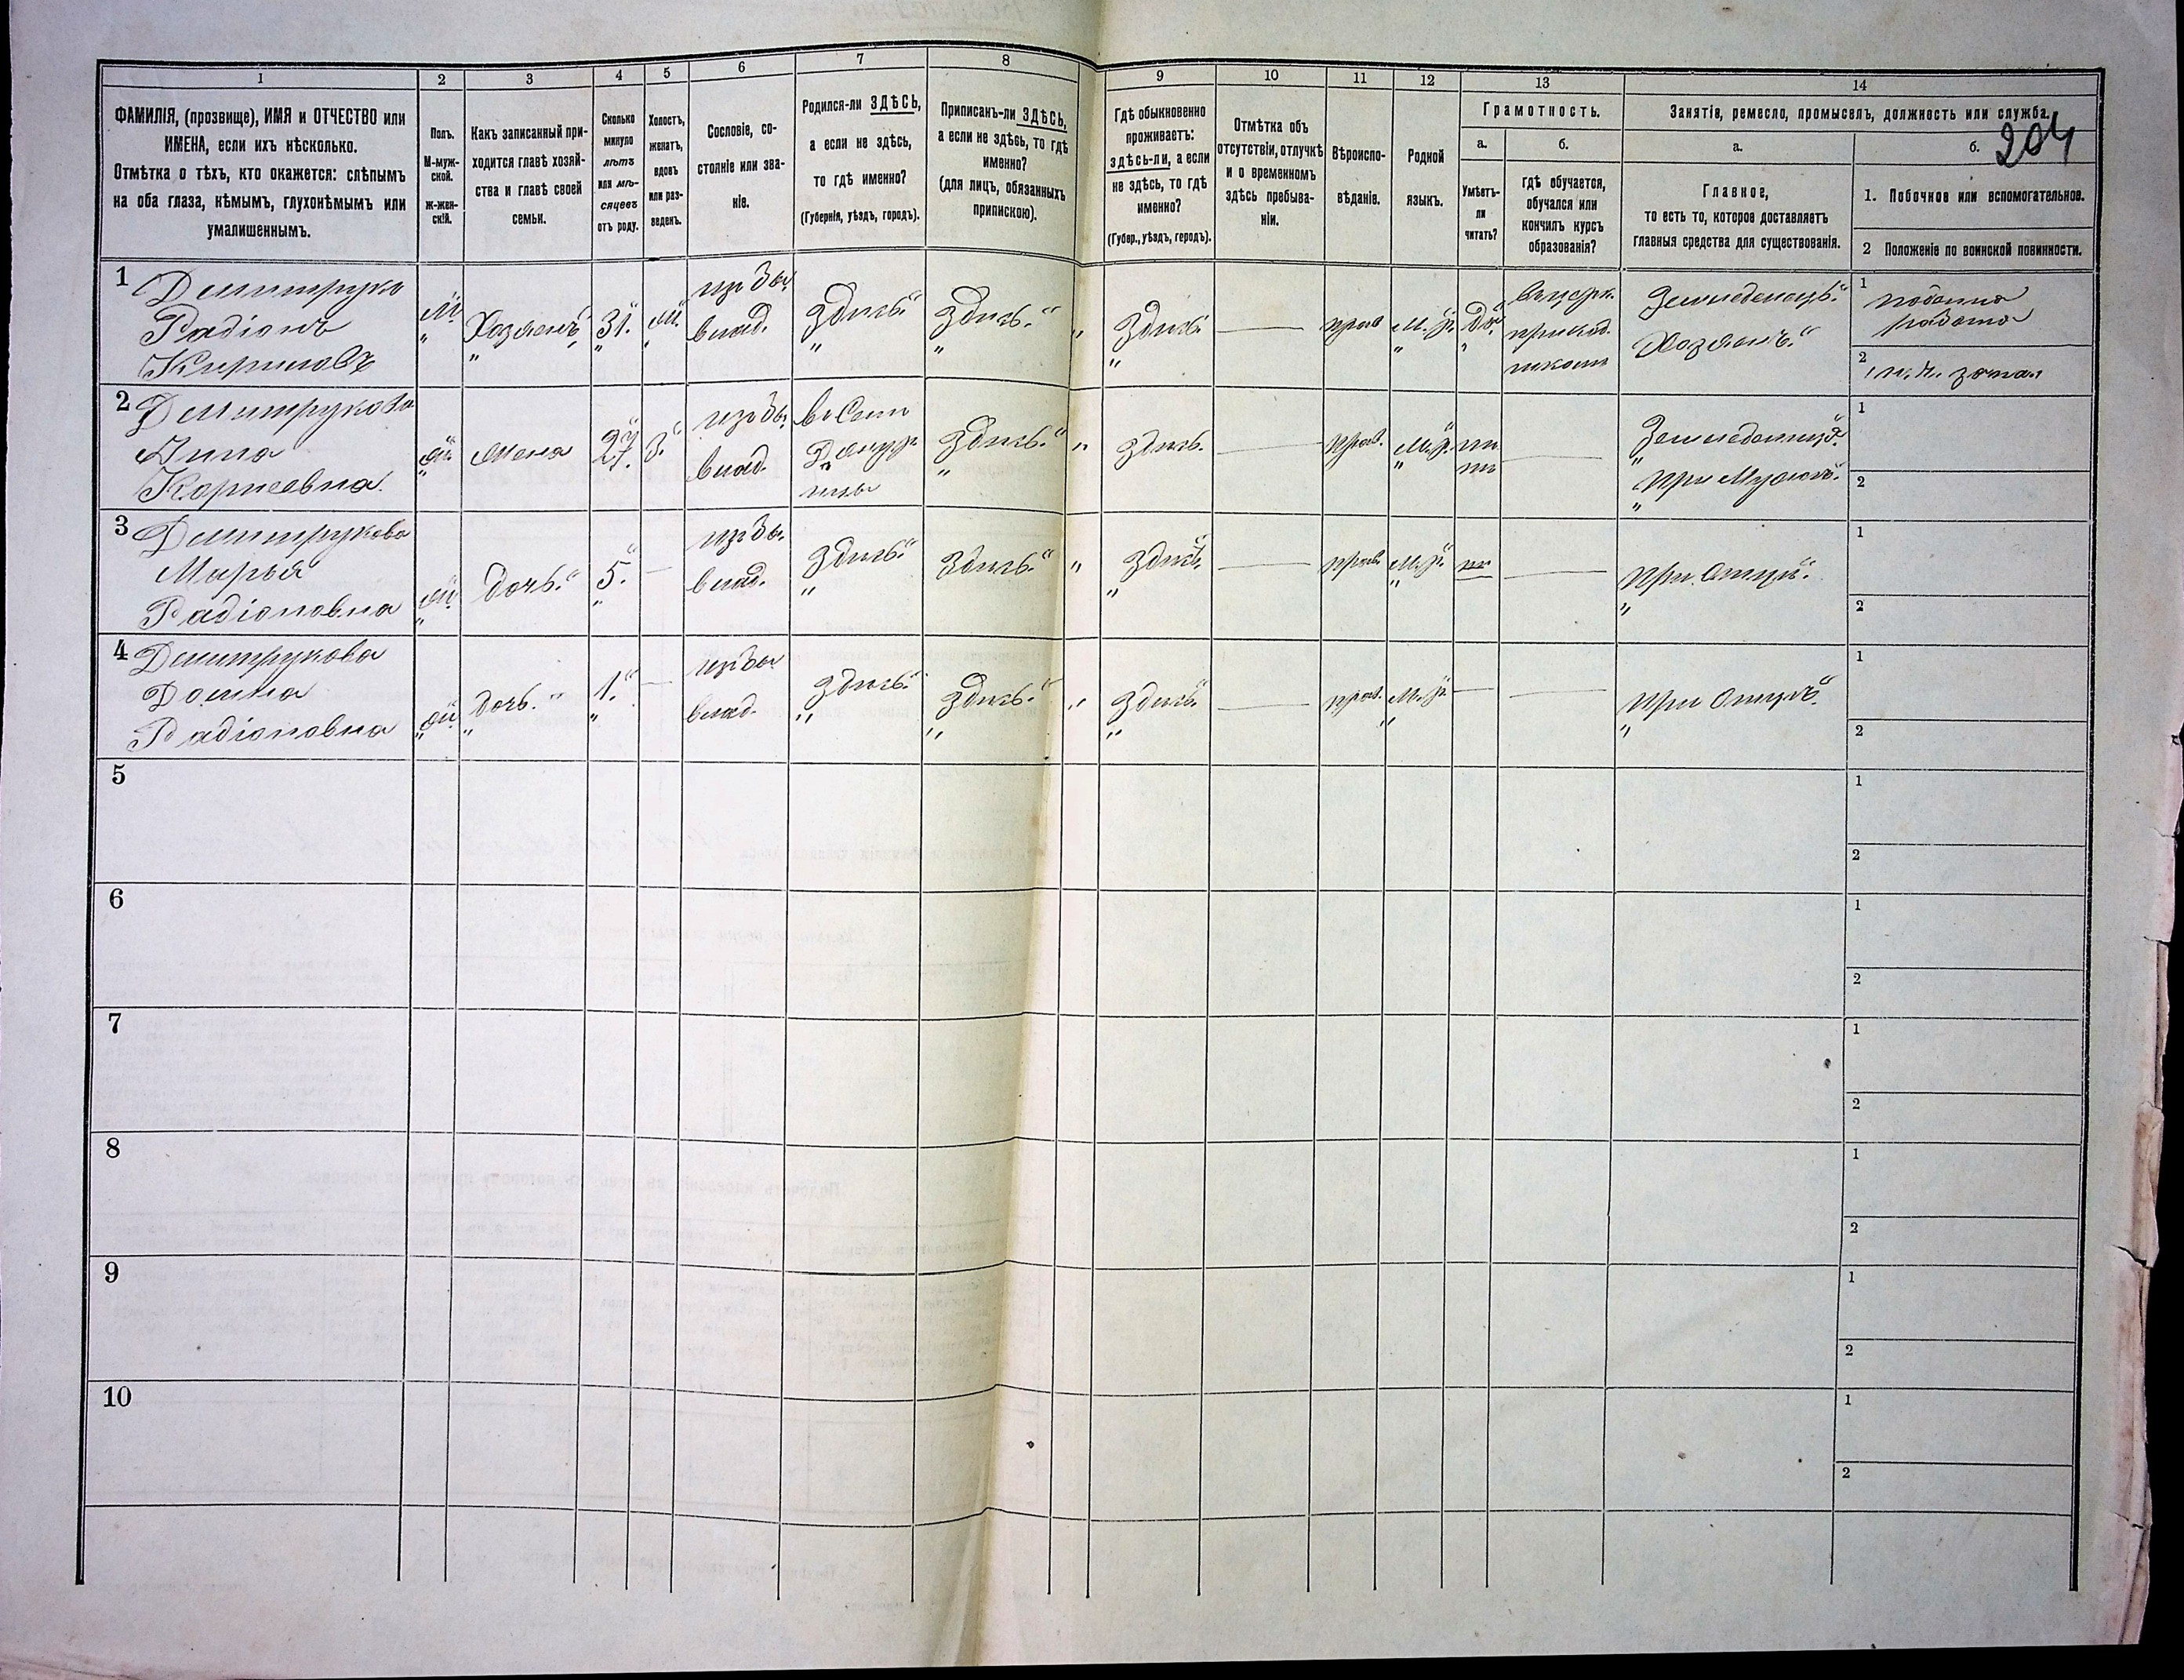 1 2 3 4 5 6 7 8 9 10 11 12 13 14
ФАМИЛІЯ, (прозвище), ИМЯ и ОТЧЕСТВО или
ИМЕНА, если ихъ нѣсколько.
Отмѣтка о тѣхъ, кто окажется: слѣпымъ
на оба глаза, нѣмымъ, глухонѣмымъ или
умалишеннымъ.
Полъ.
М-муж-
ской.
Ж-жен-
скій.
Какъ записанный при-
ходится главѣ хозяй-
ства и главѣ своей
семьи.
Сколько
минуло
лѣтъ
или мѣ-
сяцевъ
отъ роду.
Холостъ,
женатъ,
вдовъ
или раз-
веденъ.
Сословіе, со-
стояніе или зва-
ніе.
Родился-ли ЗДѢСЬ,
а если не здѣсь,
то гдѣ именно?
(Губернія, уѣздъ, городъ).
Приписанъ-ли ЗДѢСЬ,
а если не здѣсь, то гдѣ
именно?
(для лицъ, обязанныхъ
припискою).
Гдѣ обыкновенно
проживаетъ:
здѣсь-ли, а если
не здѣсь, то гдѣ
именно?
(Губер., уѣздъ, городъ).
Отмѣтка объ
отсутствіи, отлучкѣ
и о временномъ
здѣсь пребыва-
ніи.
Вѣроиспо-
вѣданіе.
Родной
языкъ.
Грамотность.
а.
Умѣетъ-
ли
читать?
б.
гдѣ обучается,
обучался или
кончилъ курсъ
образованія?
Занятія, ремесло, промыселъ, должность или служба.
204
а.
Главное,
то есть то, которое доставляетъ
главныя средства для существованія.
б.
1. Побочное или вспомогательное.
2 Положеніе по воинской повинности.
1 Демитрука
Радіонъ
Кириловъ
М.
Хозяенъ
31.
влад.
Здись
Здись
Здись
прав
М. р.
Да
школи
Земледелецъ
Хозяенъ
1
2
2 Демитрукова
Корнеевна
Жена
27.
влад.
Здись
здись.
прав.
М. р.
при Мужъ
1
2
3 Демитрукова
Марья
Радіоновна
дочь.
5.
влад.
Здись
Здись
Здись
прав.
М. р.
При Отцъ
1
2
4 Демитрукова
Домна
Радіоновна
дочь.
1.
влад.
Здись
Здись
Здись
прав.
М. р.
при Отцъ
1
2
5
1
2
6
1
2
7
1
2
8
1
2
9
1
2
10
1
2